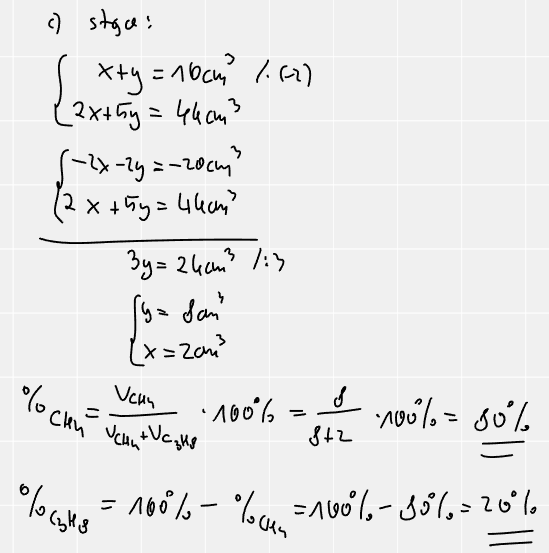 c) stąd:
x+y = 10cm³ /·(-2)
2x+5y = 44cm³
-2x-2y = -20cm³
2x+5y = 44cm³
3y = 24cm³ /:3
y = 8cm³
x = 2cm³
%CH₄ = VCH₄ / (VCH₄+VC₃H₈) · 100% = 8 / (8+2) · 100% = 80%
%C₃H₈ = 100% - %CH₄ = 100% - 80% = 20%